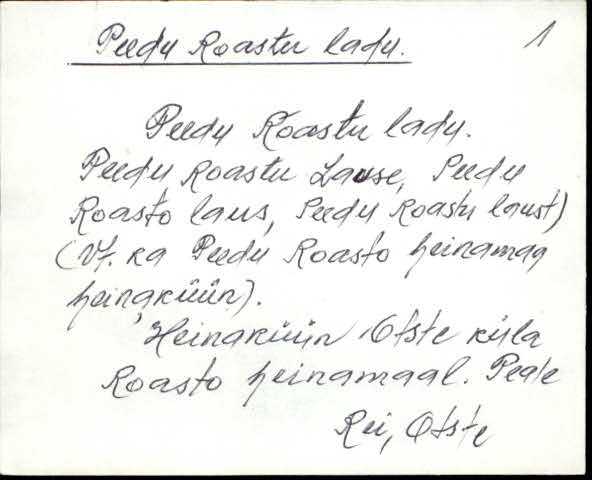 Peedu Roastu ladu. 1
Peedu Roastu ladu.
Peedu Roastu Lause, Peedu
Roasto laus, Peedu Roastu laust)
(Vt. ka Peedu Roasto heinamaa
heinaküün).
Heinaküün Otste küla
Roasto heinamaal. Peale
Rei, Otste